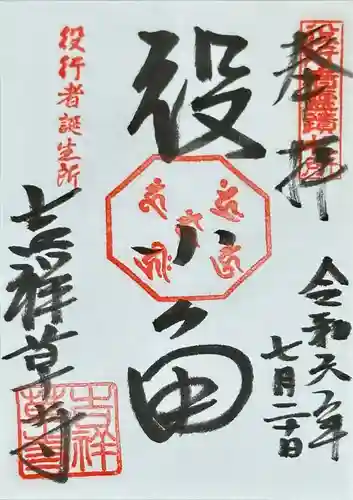 役行者霊蹟札所
奉拝
令和元年
七月二十日
役小角
役行者誕生所
吉祥草寺
吉祥
草寺